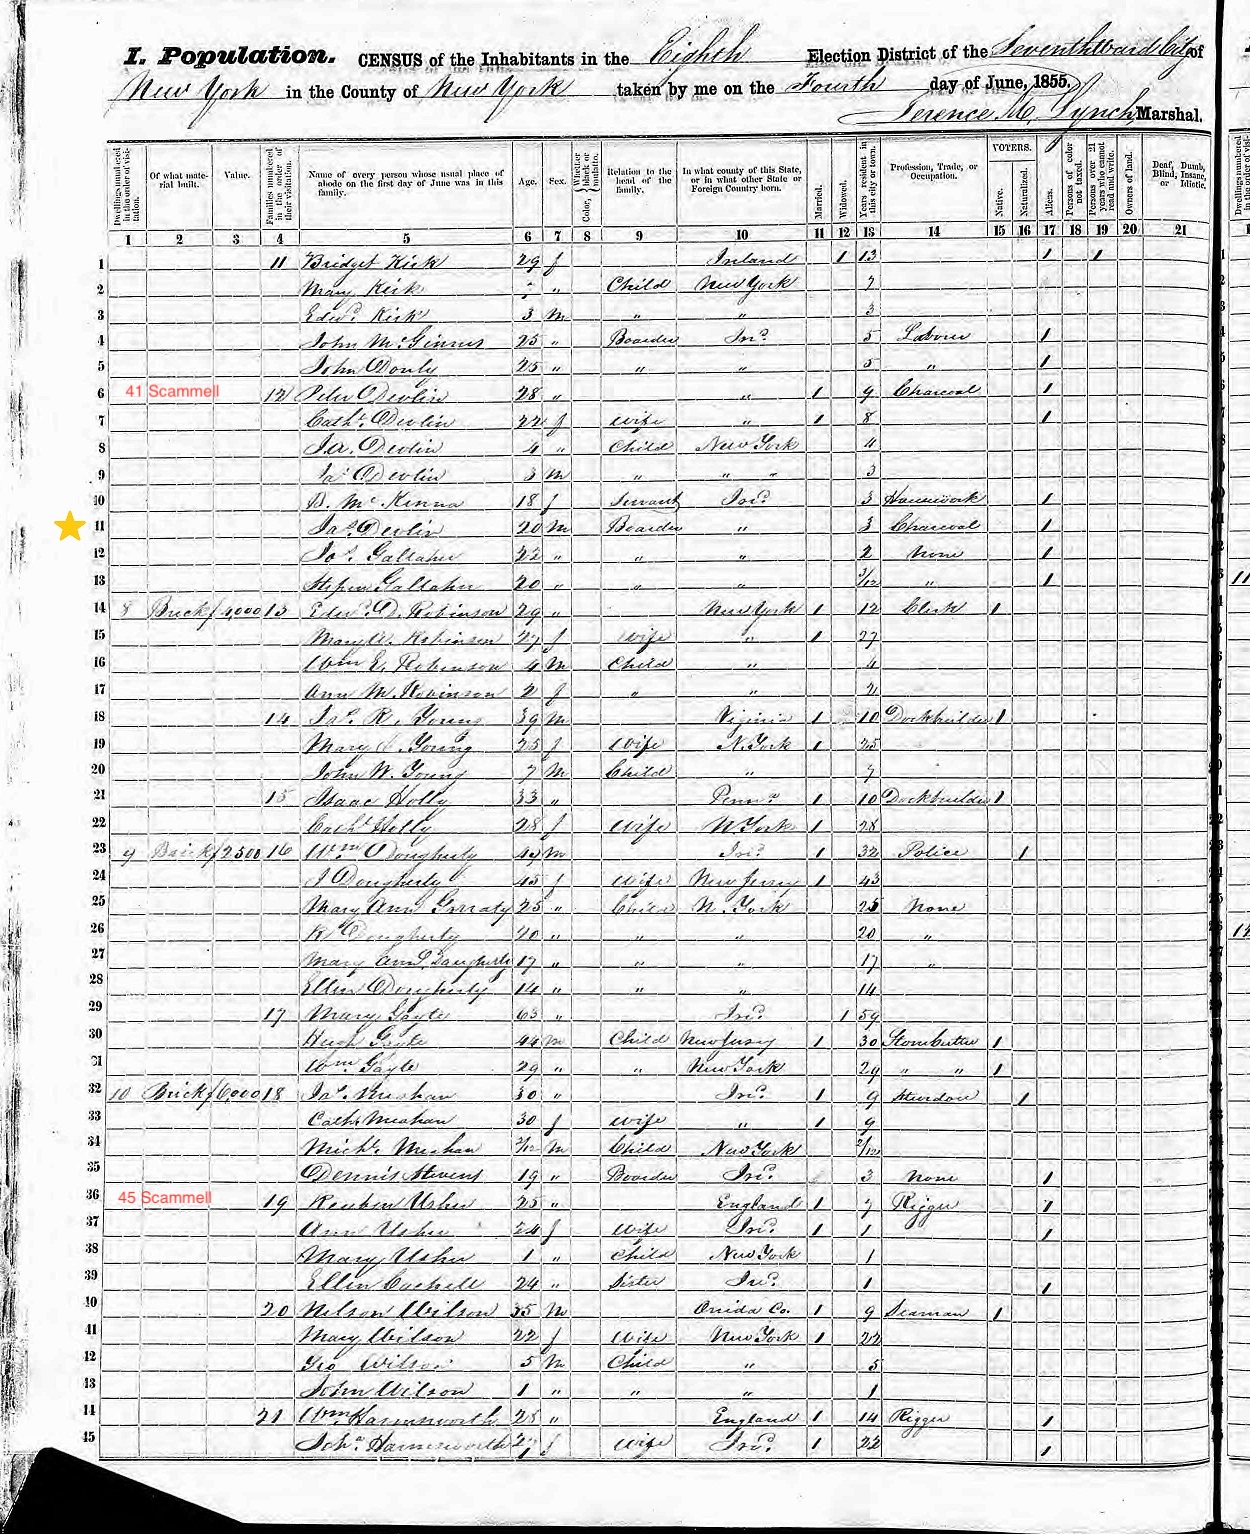 I. Population. CENSUS of the Inhabitants in the Eighth Election District of the Seventh ward City of
New York in the County of New York taken by me on the Fourth day of June, 1855.
Terence M. Lynch, Marshal.
Dwellings numbered in the order of visitation. Of what material built. Value. Families numbered in the order of their visitation. Name of every person whose usual place of abode on the first day of June was in this family. Age. Sex. Color, Whether black or mulatto. Relation to the head of the family. In what county of this State, or in what other State or Foreign Country born. Married. Widowed. Years resident in this city or town. Profession, Trade, or Occupation. VOTERS. Native. Naturalized. Aliens. Persons of color not taxed. Persons over 21 years who cannot read and write. Owners of land. Deaf, Dumb, Blind, Insane, or Idiotic.
1 2 3 4 5 6 7 8 9 10 11 12 13 14 15 16 17 18 19 20 21
1 11 Bridget Kirk 29 f Ireland 1 13 1 1
2 Mary Kirk 7 " Child New York 7
3 Edwd. Kirk 3 M " " 3
4 John McGinnis 25 " Boarder Ird. 5 Laborer 1
5 John Donly 25 " " " 5 " 1
41 Scammell
6 12 Peter Devlin 28 " " 1 9 Charcoal 1
7 Catht. Devlin 22 f Wife " 1 8 1
8 Ja. Devlin 4 " Child New York 4
9 Jas Devlin 3 M " " " 3
10 B. McKenna 18 f Servant Ird. 3 Housework 1
11 Jas. Devlin 20 M Boarder " 3 Charcoal 1
12 Jos. Gallaher 22 " " " 2 None 1
13 Stephen Gallaher 20 " " " 3/12 " 1
14 8 Brick 4,000 13 Edwd. D. Robinson 29 " New York 1 12 Clerk 1
15 Mary A. Robinson 27 f Wife " 1 27
16 Wm E. Robinson 4 M Child " 4
17 Ann M. Robinson 2 f " " 2
18 14 Jas. R. Young 39 M Virginia 1 10 Dockbuilder 1
19 Mary Young 25 f Wife N. York 1 25
20 John W. Young 7 M Child " 7
21 15 Isaac Holly 33 " Penna. 1 10 Dockbuilder 1
22 Catht Holly 28 f Wife N York 1 28
23 9 Brick 2500 16 Wm Dougherty 42 M Ird. 1 32 Police 1
24 J Dougherty 45 f Wife New Jersey 1 43
25 Mary Ann 25 " Child N. York 25 None
26 R Dougherty 20 " " " 20 "
27 Mary Ann Dougherty 17 " " " 17 "
28 Ellen Dougherty 14 " " " 14
29 17 Mary Gayte 63 " Ird. 1 59
30 Hugh Gayte 44 M Child New Jersey 1 30 Stonecutter 1
31 Wm Gayte 29 " " New York 29 " " 1
32 10 Brick 6,000 18 Jas. Meehan 30 " Ird. 1 9 1
33 Cath Meehan 30 f Wife " 1 9
34 Michl. Meehan 2/12 M Child New York 2/12
35 Dennis Stevens 19 " Boarder Ird. 3 None 1
45 Scammell
36 19 Reuben Usher 25 " England 1 7 Rigger 1
37 Ann Usher 24 f Wife Ird. 1 1 1
38 Mary Usher 1 " Child New York 1
39 Ellen Cashell 24 " Sister Ird. 1 1
40 20 Nelson Wilson 35 M Onida Co. 1 9 Seaman 1
41 Mary Wilson 22 f Wife New York 1 22
42 Geo Wilson 5 M Child " 5
43 John Wilson 1 " " " 1
44 21 Wm Harmsworth 28 " England 1 14 Rigger 1
45 Joha. Harmsworth 27 f Wife Ird. 1 22 1